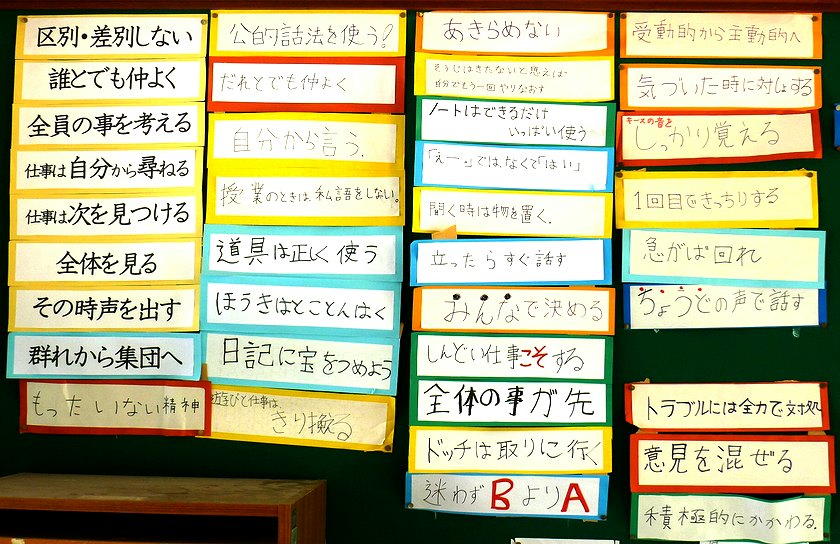 区別・差別しない
誰とでも仲よく
全員の事を考える
仕事は自分から尋ねる
仕事は次を見つける
全体を見る
その時声を出す
群れから集団へ
もったいない精神
公的話法を使う!
だれとでも仲よく
自分から言う.
授業のときは、私語をしない。
道具は正しく使う
ほうきはとことんはく
日記に宝をつめよう
遊びと仕事は、
きり換える
あきらめない
そうじはきたないと思えば
自分でもう一回やりなおす
ノートはできるだけ
いっぱい使う
「えー。」では、なくて「はい」
聞く時は物を置く.
立ったらすぐ話す
みんなで決める
しんどい仕事こそする
全体の事が先
ドッチは取りに行く
迷わずBよりA
受動的から主動的へ
気づいた時に対しょする
キースの音を
しっかり覚える
1回目できっちりする
急がば回れ
ちょうどの声で話す
トラブルには全力で対処
意見を混ぜる
積極的にかかわる.